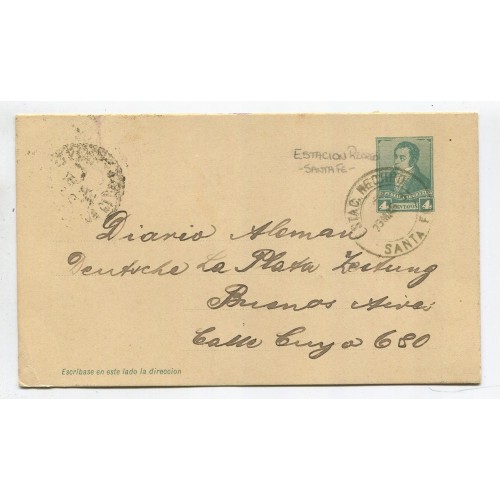 ESTACION
-SANTA FE-
4 4
CENTAVOS
ESTAC.
SANTA FE
Diario Aleman
Deutsche La Plata Zeitung
Buenos Aires
Calle Cuyo 680
Escríbase en este lado la direccion